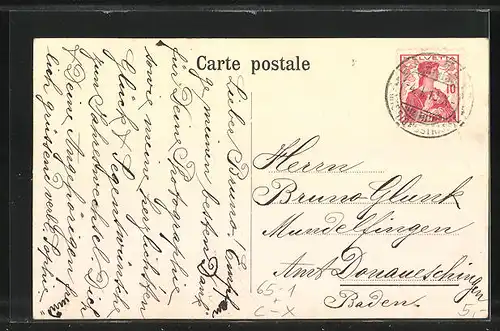 Carte postale
HELVETIA
10
Lieber Bruno! Empfan
ge meinen besten Dank
für Deine Photographie
sowie meine herzlichsten
Glück & Segenswünsche
zum Jahreswechsel. Dich
& Deine Angehörigen
lich grüssend verbl. Sophie.
Herrn
Bruno Glunk
Mundelfingen
Amt Donaueschingen
Baden.
65-1
+
C-X
5,-